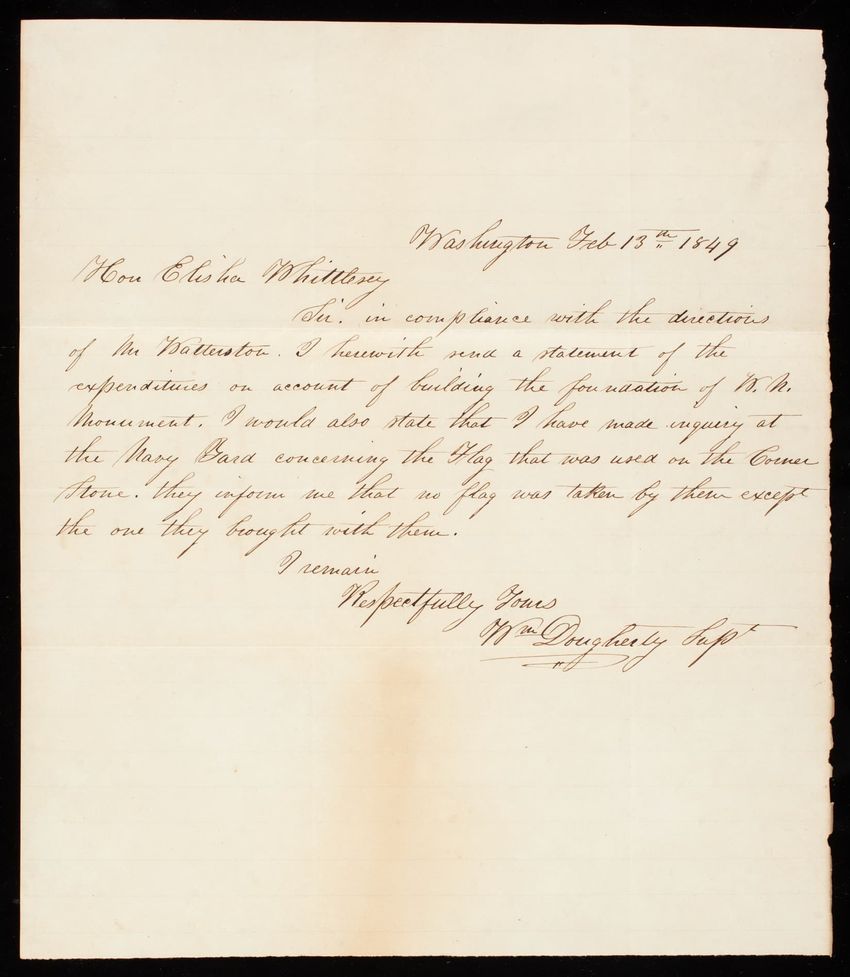 Washington Feb 13th 1849
Hon Elisha Whittlesey
Sir. in compliance with the directions
of Mr Watterston. I herewith send a statement of the
expenditures on account of building the foundation of W. N.
Monument. I would also state that I have made inquiry at
the Navy Yard concerning the Flag that was used on the Corner
Stone. they inform me that no flag was taken by them except
the one they brought with them.
I remain
Respectfully Yours
Wm Dougherty Supt